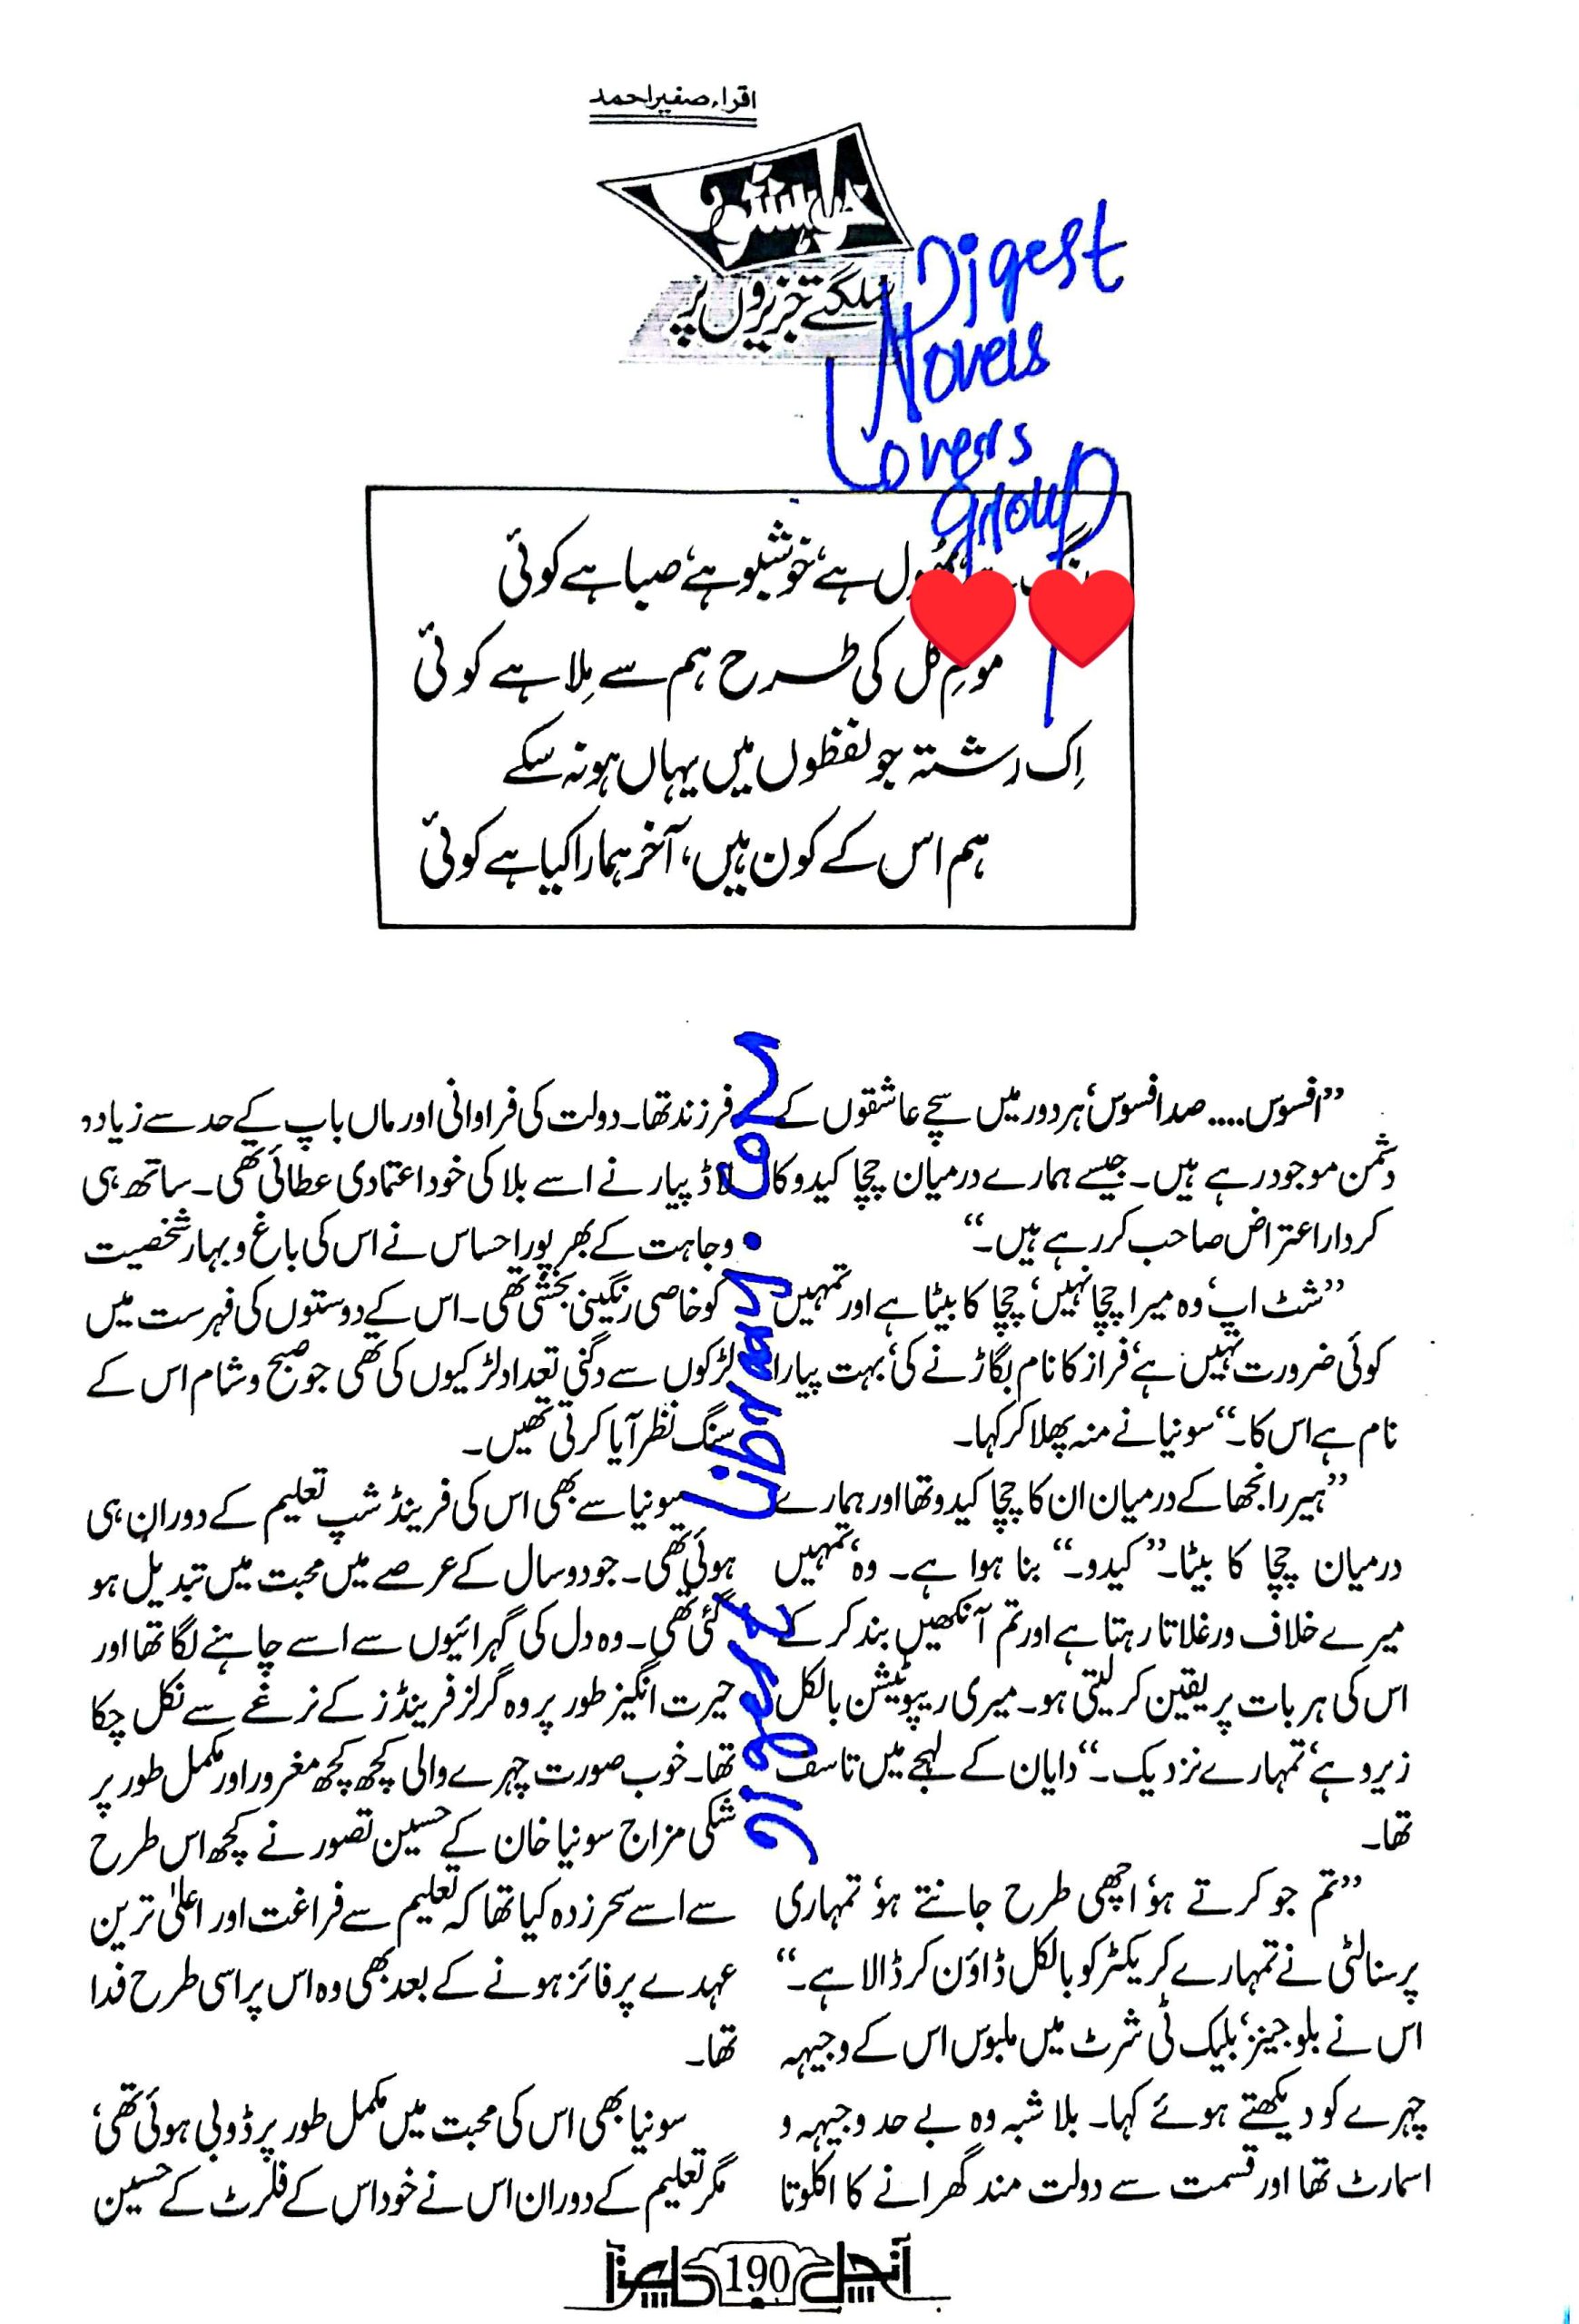 اقراء صغیر احمد
سلگتے جزیروں پر
Digest
Novels
Lovers
group
ہے، خوشبو ہے، صبا ہے کوئی
موسمِ گل کی طرح ہم سے مِلا ہے کوئی
اِک رشتہ جو لفظوں میں یہاں ہو نہ سکے
ہم اس کے کون ہیں، آخر ہمارا کیا ہے کوئی
”افسوس.... صد افسوس، ہر دور میں سچے عاشقوں کے
دشمن موجود رہے ہیں۔ جیسے ہمارے درمیان چچا کیدو کا
کردار اعتراض صاحب کر رہے ہیں۔“
”شٹ اپ، وہ میرا چچا نہیں، چچا کا بیٹا ہے اور تمہیں
کوئی ضرورت نہیں ہے، فراز کا نام بگاڑنے کی، بہت پیارا
نام ہے اس کا۔“ سونیا نے منہ پھلا کر کہا۔
”ہیر رانجھا کے درمیان ان کا چچا کیدو تھا اور ہمارے
درمیان چچا کا بیٹا۔ ”کیدو۔“ بنا ہوا ہے۔ وہ، تمہیں
میرے خلاف ورغلاتا رہتا ہے اور تم آنکھیں بند کر کے
اس کی ہر بات پر یقین کر لیتی ہو۔ میری ریپوٹیشن بالکل
زیرو ہے، تمہارے نزدیک۔“ دایان کے لہجے میں تاسف
تھا۔
”تم جو کرتے ہو، اچھی طرح جانتے ہو، تمہاری
پرسنالٹی نے تمہارے کریکٹر کو بالکل ڈاؤن کر ڈالا ہے۔“
اس نے بلو جینز، بلیک ٹی شرٹ میں ملبوس اس کے وجیہہ
چہرے کو دیکھتے ہوئے کہا۔ بلا شبہ وہ بے حد وجیہہ و
اسمارٹ تھا اور قسمت سے دولت مند گھرانے کا اکلوتا
فرزند تھا۔ دولت کی فراوانی اور ماں باپ کے حد سے زیادہ
لاڈ پیار نے اسے بلا کی خود اعتمادی عطا کی تھی۔ ساتھ ہی
وجاہت کے بھرپور احساس نے اس کی باغ و بہار شخصیت
کو خاصی رنگینی بخشی تھی۔ اس کے دوستوں کی فہرست میں
لڑکوں سے دگنی تعداد لڑکیوں کی تھی جو صبح و شام اس کے
سنگ نظر آیا کرتی تھیں۔
سونیا سے بھی اس کی فرینڈ شپ تعلیم کے دوران ہی
ہوئی تھی۔ جو دو سال کے عرصے میں محبت میں تبدیل ہو
گئی تھی۔ وہ دل کی گہرائیوں سے اسے چاہنے لگا تھا اور
حیرت انگیز طور پر وہ گرلز فرینڈز کے نرغے سے نکل چکا
تھا۔ خوب صورت چہرے والی کچھ کچھ مغرور اور مکمل طور پر
شکی مزاج سونیا خان کے حسین تصور نے کچھ اس طرح
سے اسے سحر زدہ کیا تھا کہ تعلیم سے فراغت اور اعلیٰ ترین
عہدے پر فائز ہونے کے بعد بھی وہ اس پر اسی طرح فدا
تھا۔
سونیا بھی اس کی محبت میں مکمل طور پر ڈوبی ہوئی تھی،
مگر تعلیم کے دوران اس نے خود اس کے فلرٹ کے حسین
آنچل 190 کراچی